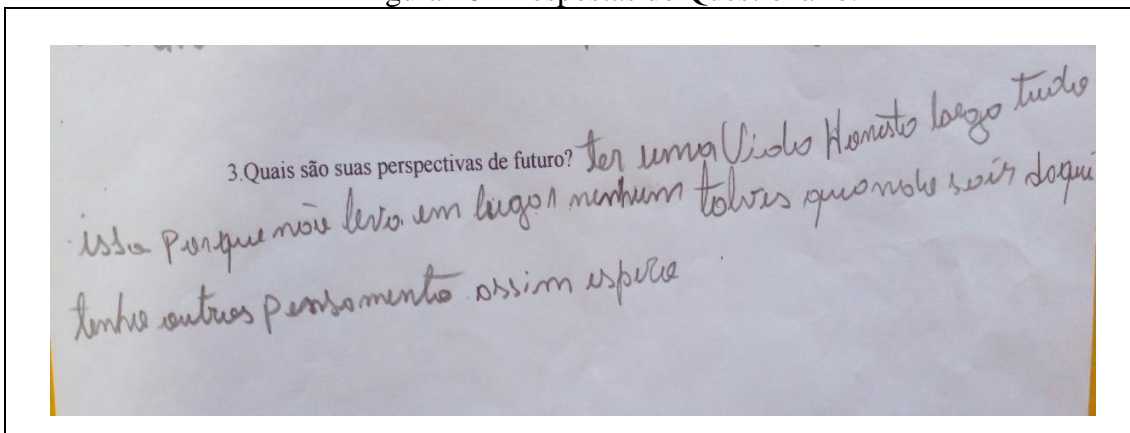 3.Quais são suas perspectivas de futuro? ter uma Vida Honesta largo tudo
isso Porque não leva em lugar nenhum talves quando sair daqui
tenho outros Pensamento assim espero